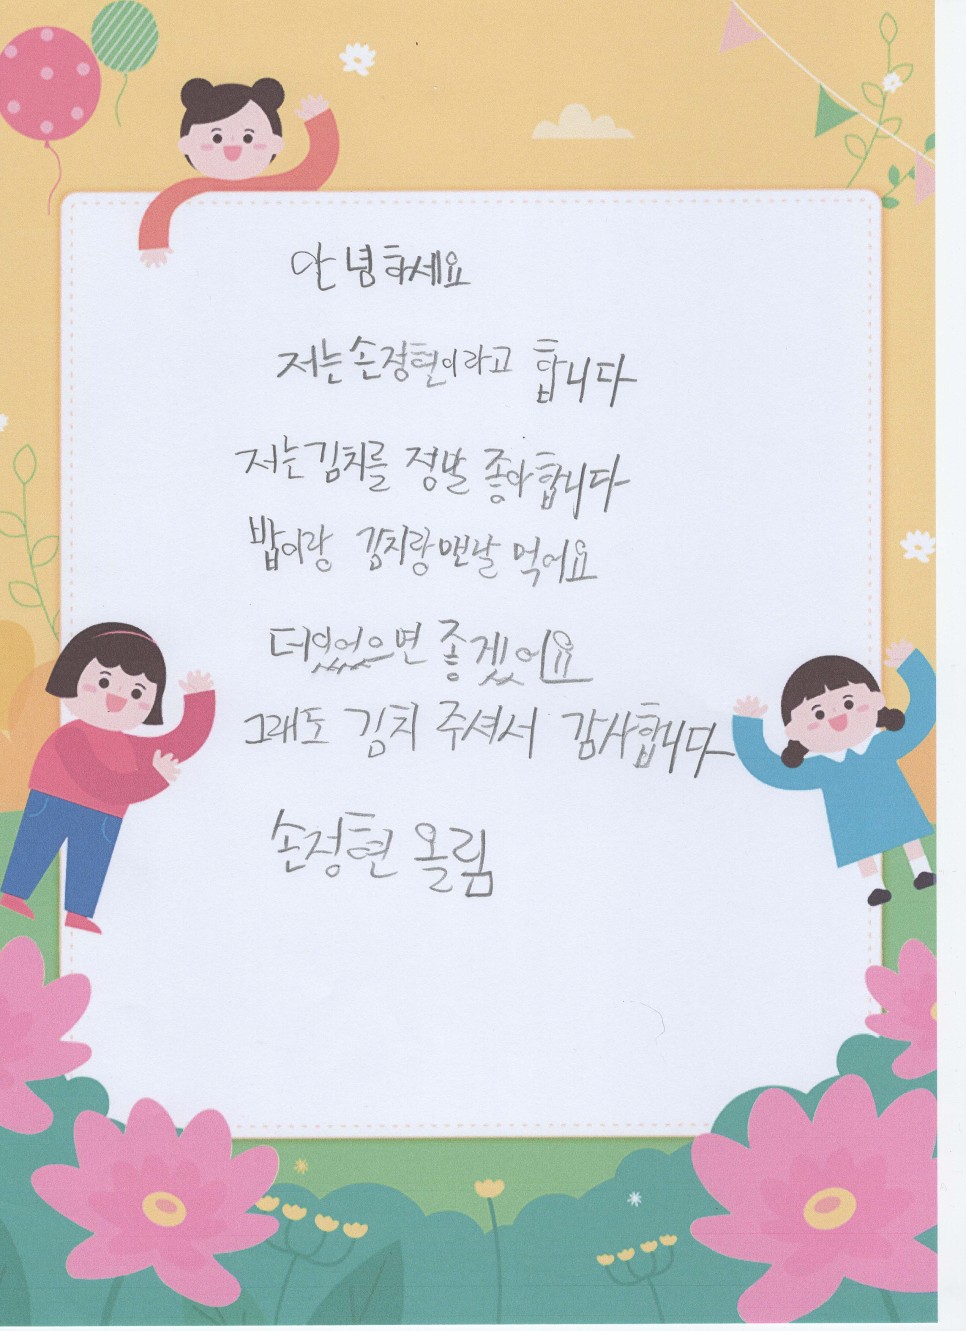 안녕하세요
저는손정현이라고 합니다
저는김치를 정말 좋아합니다
밥이랑 김치랑맨날 먹어요
더있었으면 좋겠어요
그래도 김치 주셔서 감사합니다
손정현 올림